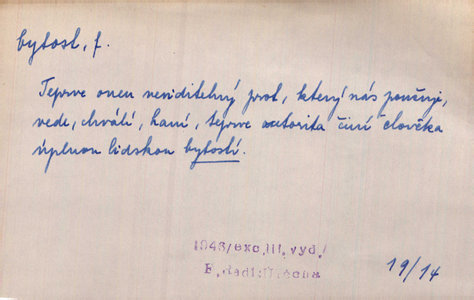 bytost, f.
Teprve onen neviditelný prst, který nás poučuje,
vede, chválí, haní, teprve autorita činí člověka
úplnou lidskou bytostí.
1946/exc.III.vyd./
19/14